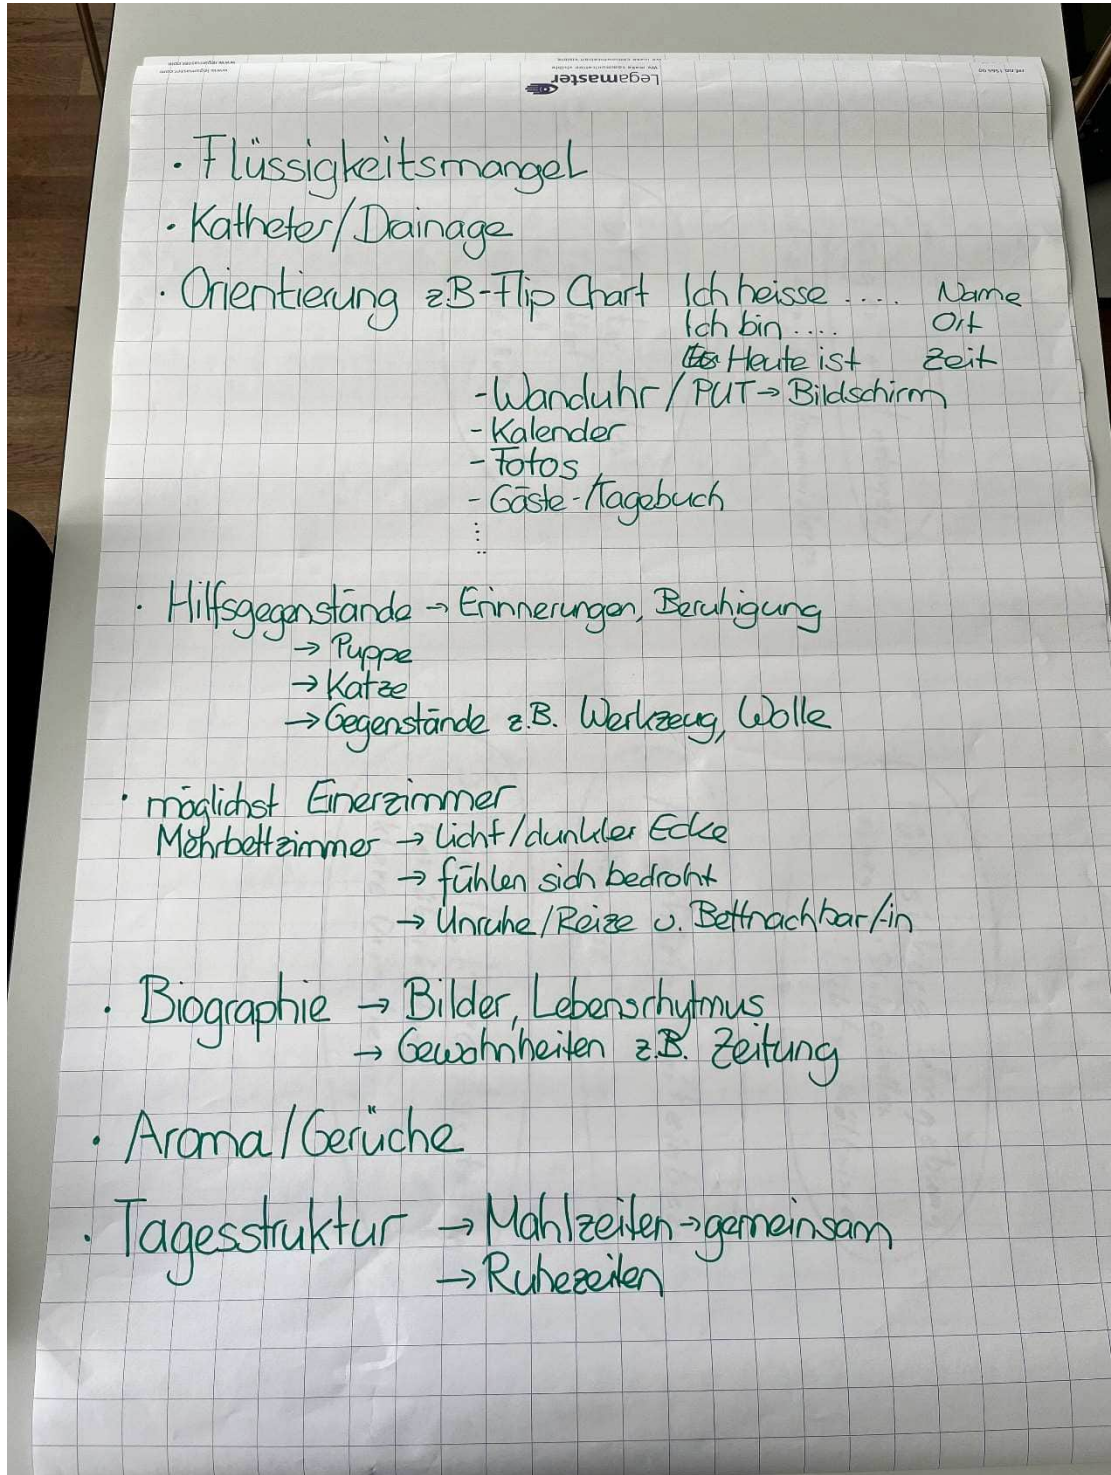 Legamaster
· Flüssigkeitsmangel
· Katheter/Drainage
· Orientierung z.B-Flip Chart Ich heisse .... Name
Ich bin .... Ort
Heute ist Zeit
- Wanduhr / PUT → Bildschirm
- Kalender
- Fotos
- Gäste-/Tagebuch
....
· Hilfsgegenstände → Erinnerungen, Beruhigung
→ Puppe
→ Katze
→ Gegenstände z.B. Werkzeug, Wolle
· möglichst Einerzimmer
Mehrbettzimmer → Licht/dunkler Ecke
→ fühlen sich bedroht
→ Unruhe/Reize v. Bettnachbar/-in
· Biographie → Bilder, Lebensrhytmus
→ Gewohnheiten z.B. Zeitung
· Aroma/Gerüche
· Tagesstruktur → Mahlzeiten → gemeinsam
→ Ruhezeiten